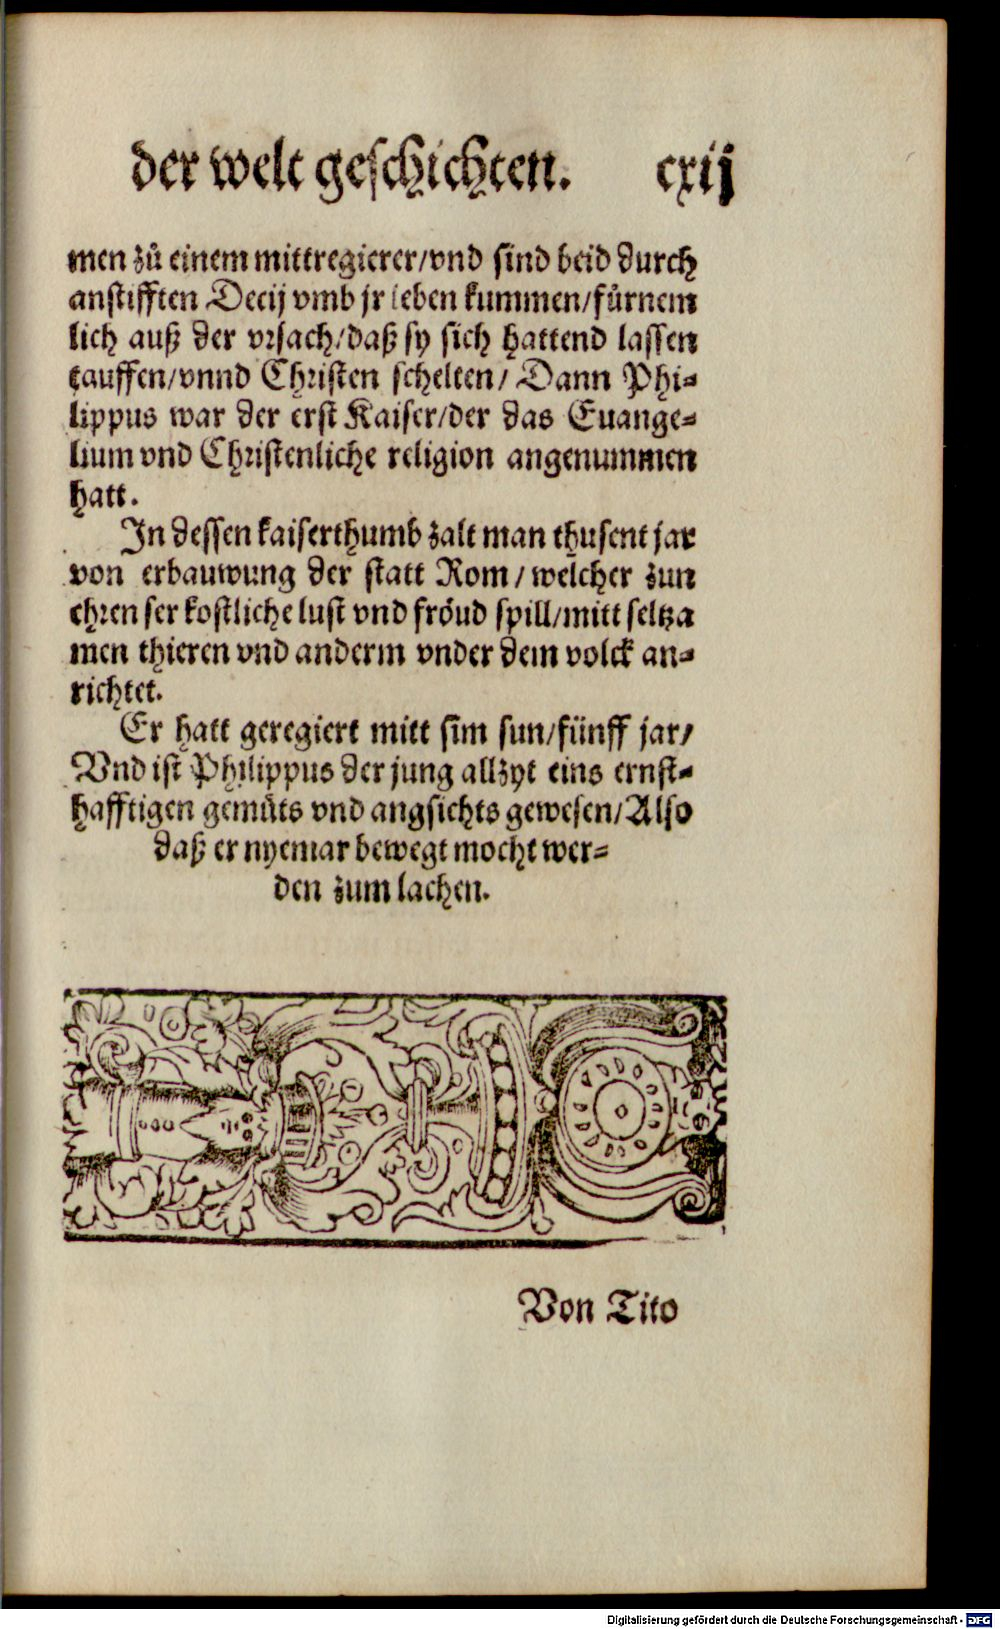 der welt geschichten. cxij
men zů einem mittregierer/vnd sind beid durch
anstifften Decij vmb jr leben kummen/fürnem
lich auß der vrsach/daß sy sich hattend lassen
tauffen/vnnd Christen schelten/ Dann Phi⸗
lippus war der erst Kaiser/der das Euange⸗
lium vnd Christenliche religion angenummen
hatt.
In dessen kaiserthumb zalt man thusent jar
von erbauwung der statt Rom/welcher zun
ehren ser kostliche lust vnd fröud spill/mitt seltza
men thieren vnd anderm vnder dem volck an⸗
richtet.
Er hatt geregiert mitt sim sun/fünff jar/
Vnd ist Philippus der jung allzyt eins ernst⸗
hafftigen gemüts vnd angsichts gewesen/Also
daß er nyemar bewegt mocht wer⸗
den zum lachen.
Von Tito
Digitalisierung gefördert durch die Deutsche Forschungsgemeinschaft - DFG